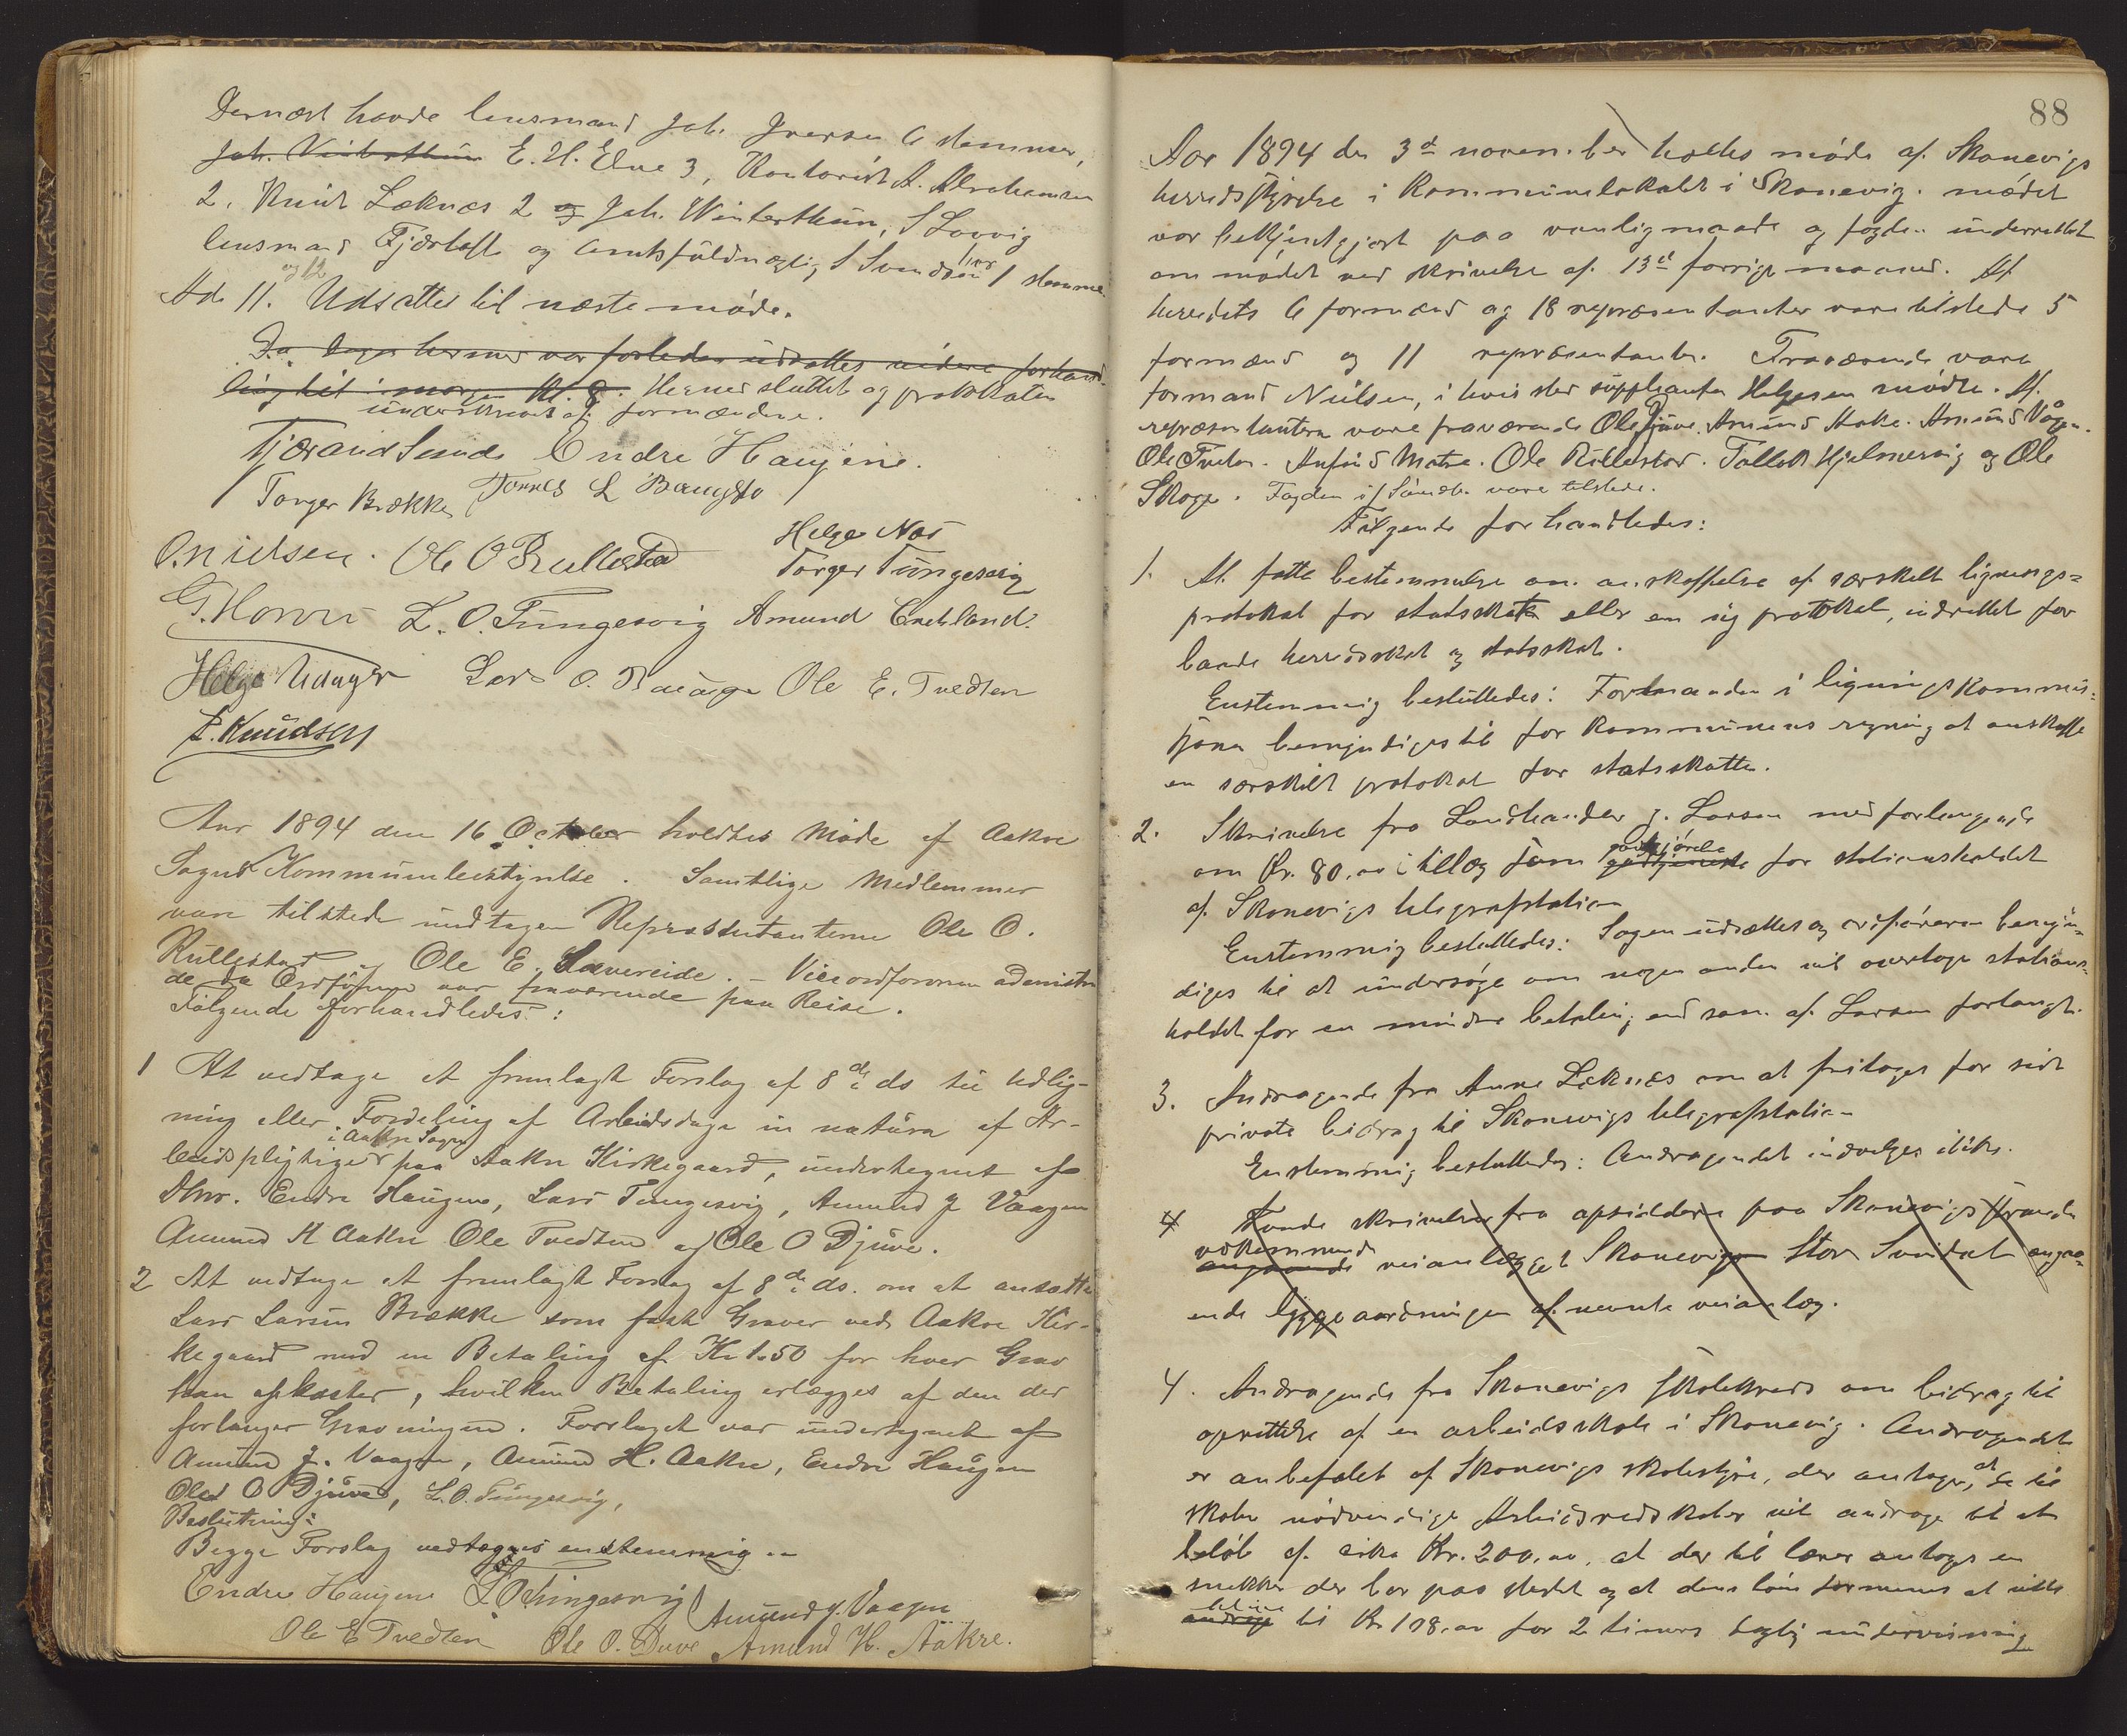 Dernæst havde lensmand Joh. Iversen 6 stemmer,
Joh. Winterthun E. H. Elne 3, Kontorist A. Abrahamsen
2, Knut Læknæs 2 og Joh. Winterthun, S Lovvig
lensmand Fjærtoft og amtsfuldmægtig S Svendsen hver 1 stemme.
og 12
Ad. 11. Udsattes til næste møde.
Da dagen hermed var forleden udsattes videre forhand-
ling til i morgen Kl. 8. Hermed sluttet og protokolen
underskrevet af formændene.
Tjærand Sunde Endre Haugene.
Torger Brække Tørres L Baugsto
O. Nielsen. Ole O Rullestad Helge Næs
Torger Tungesvig
G. Horvei L. O. Tungesvig Amund Enehland.
Helge Udager Lars O. Baugge Ole E. Tvedten
L. Knudsen
Aar 1894 den 16 October holdtes Møde af Aakre
Sogns Kommunebestyrelse. Samtlige Medlemmer
vare tilstede undtagen Repræsentanterne Ole O.
Rullestad og Ole E. Lævereide. – Viceordføreren administre
de da Ordføreren var fraværende paa Reise.
Følgende forhandledes:
1 At vedtage et fremlagt Forslag af 8de ds til Udlig-
ning eller Fordeling af Arbeidsdage in natura af Ar-
i Aakre Sogn
beidspligtige paa Aakre Kirkegaard, undertegnet af
Dhrr. Endre Haugene, Lars Tungesvig, Amund J Vaagen
Amund H Aakre Ole Tvedten og Ole O Djuve.
2 At vedtage et fremlagt Forslag af 8de ds. om at ansætte
Lars Larsen Brække som fast Graver ved Aakre Kir-
kegaard med en Betaling af Kr 1.50 for hver Grav
han opkaster, hvilken Betaling erlægges af den der
forlanger Gravningen. Forslaget var undertegnet af
Amund J. Vaagen, Amund H. Aakre, Endre Haugen
Ole O Djuve, L. O. Tungesvig,
Beslutning:
Begge Forslag vedtages enstemmig. –
Endre Haugene L O Tungesvig Amund J. Vaagen
Ole E Tvedten Ole O. Duve Amund H. Aakre.
88
Aar 1894 den 3d november holtes møde af Skonevigs
herredsstyrelse i Kommunelokalet i Skonevig. mødet
var bekjendtgjort paa vanlig maade og fogden underrettet
om mødet ved skrivelse af 13d forrige maaned. Af
herredets 6 formænd og 18 repræsentanter vare tilstede 5
formænd og 11 repræsentanter. Fraværende vare
formand Neilsen, i hvis sted suppleanten Helgesen mødte. Af
repræsentantern vare fraværende Ole Djuve. Amund Aake. Amund Vågen.
Ole Tveten. Anfind Matre. Ole Rullestad. Tollak Hjelmervig og Ole
Skoge. Fogden i Søndh. vare tilstede.
Følgende forhandledes:
1. At fatte bestemmelse om anskaffelse af særskilt lignings-
protokol for statsskat eller en ny protokol, indrettet for
baade herredsskat og statsskat.
Enstemmig besluttedes: Formanden i ligningskommis-
jonen bemyndiges til for kommunens regning at anskaffe
en særskilt protokol for statsskatten.
2. Skrivelse fra Landhandler J. Larsen med forlangende
godtgjørelse
om Kr. 80.00 i tillæg som godtjeneste for stationsholdet
af Skonevigs telegrafstation
Enstemmig besluttedes: Sagen udsættes og ordføreren bemyn-
diges til at undersøge om nogen anden vil overtage stations-
holdet for en mindre betaling end som af Larsen forlangt.
3. Andragende fra Anne Læknæs om at fritages for sidt
private bidrag til Skonevigs telegrafstation
Enstemmig besluttedes: Andragendet indvilges ikke.
4 skrivelse fra opsiddere paa Skonevigsstranden
vedkommende
angaaende veianlægget Skonevig Stor Svindal angaa-
ende byggeaardningen af nevnte veianlæg.
4. Andragende fra Skonevigs skolekreds om bidrag til
oprettelse af en arbeidsskole i Skonevig. Andragendet
er anbefalet af Skonevigs skolestyre, der antager, at de til
skolen nødvendige Arbeidsredskaber vil andrage til et
beløb af cirka Kr. 200.00, at der til lærer antages en
snekker der bor paa stedet og at dens løn formenes at ville
beløbe
andrage til Kr 108.00 for 2 timers daglig undervisning